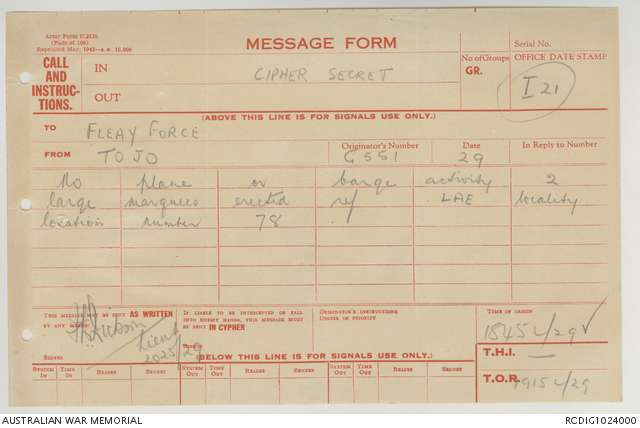 Army Form C.2128.
(Pads of 100)
Reprinted May, 1942
MESSAGE FORM
Serial No.
CALL AND INSTRUCTIONS.
IN
CIPHER SECRET
No of Groups
GR.
OFFICE DATE STAMP
I 21
OUT
(ABOVE THIS LINE IS FOR SIGNALS USE ONLY.)
TO
FLEAY FORCE
FROM
TOJO
Originator's Number
G551
Date
29
In Reply to Number
No plane or barge activity 2
large marquees erected ref LAE locality
location number 78
THIS MESSAGE MAY BE SENT AS WRITTEN
BY ANY MEANS
IF LIABLE TO BE INTERCEPTED OR FALL
INTO ENEMY HANDS, THIS MESSAGE MUST
BE SENT IN CIPHER
ORIGINATOR'S INSTRUCTIONS
DEGREE OF PRIORITY
TIME OF ORIGIN
1845 L/29
Lieut
2025/29
SIGNED
SIGNED
(BELOW THIS LINE IS FOR SIGNALS USE ONLY.)
T.H.I. —
SYSTEM IN
TIME IN
READER
SENDER
SYSTEM OUT
TIME OUT
READER
SENDER
SYSTEM OUT
TIME OUT
READER
SENDER
T.O.R.
1915 L/29
AUSTRALIAN WAR MEMORIAL
RCDIG1024000